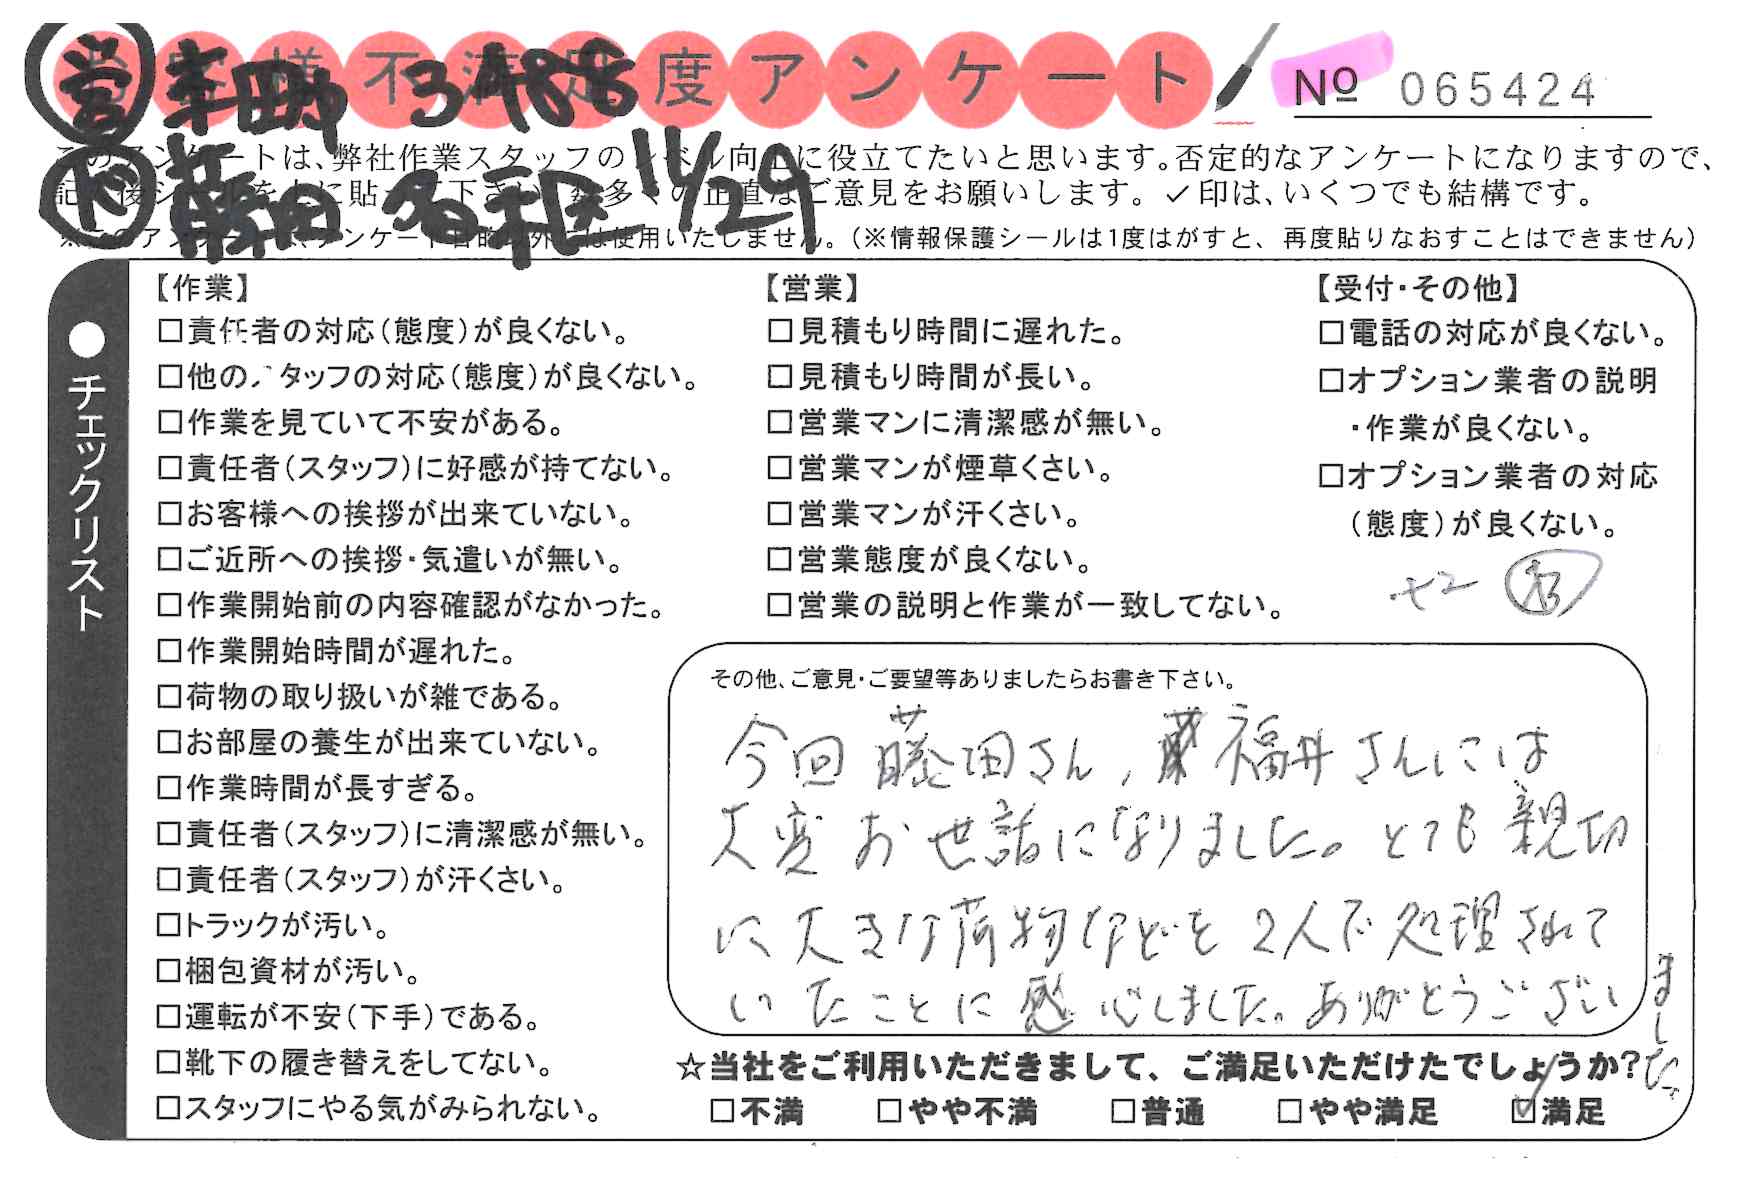 様不満足度アンケート
№ 065424
営 車田 3A88
ド 藤田 名和区 11/29
このアンケートは、弊社作業スタッフのレベル向上に役立てたいと思います。否定的なアンケートになりますので、
後シールを上に貼って下さい。数多くの正直なご意見をお願いします。✓印は、いくつでも結構です。
※このアンケートは、アンケート目的以外には使用いたしません。（※情報保護シールは1度はがすと、再度貼りなおすことはできません）
●チェックリスト
【作業】
□責任者の対応（態度）が良くない。
□他のスタッフの対応（態度）が良くない。
□作業を見ていて不安がある。
□責任者（スタッフ）に好感が持てない。
□お客様への挨拶が出来ていない。
□ご近所への挨拶・気遣いが無い。
□作業開始前の内容確認がなかった。
□作業開始時間が遅れた。
□荷物の取り扱いが雑である。
□お部屋の養生が出来ていない。
□作業時間が長すぎる。
□責任者（スタッフ）に清潔感が無い。
□責任者（スタッフ）が汗くさい。
□トラックが汚い。
□梱包資材が汚い。
□運転が不安（下手）である。
□靴下の履き替えをしてない。
□スタッフにやる気がみられない。
【営業】
□見積もり時間に遅れた。
□見積もり時間が長い。
□営業マンに清潔感が無い。
□営業マンが煙草くさい。
□営業マンが汗くさい。
□営業態度が良くない。
□営業の説明と作業が一致してない。
【受付・その他】
□電話の対応が良くない。
□オプション業者の説明
・作業が良くない。
□オプション業者の対応
（態度）が良くない。
その他、ご意見・ご要望等ありましたらお書き下さい。
今回藤田さん，福井さんには
大変お世話になりました。とても親切
に大きな荷物などを2人で処理されて
いたことに感心しました。ありがとうござい
ました。
☆当社をご利用いただきまして、ご満足いただけたでしょうか？
□不満 □やや不満 □普通 □やや満足 ☑満足